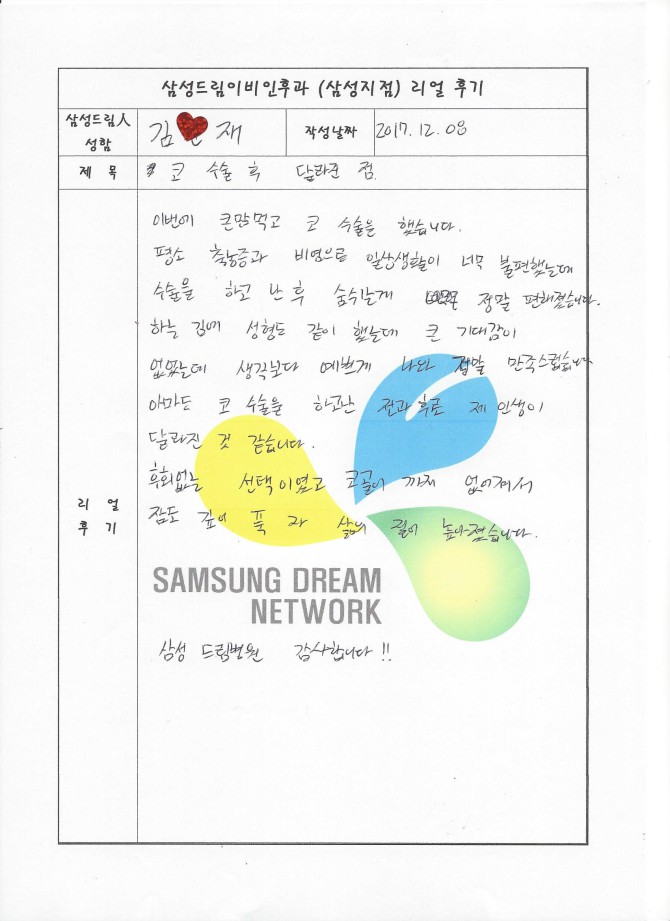 삼성드림이비인후과 (삼성지점) 리얼 후기
삼성드림人
성함
김 재
작성날짜
2017. 12. 08
제 목
코 수술 후 달라진 점.
이번에 큰맘먹고 코 수술을 했습니다.
평소 축농증과 비염으로 일상생활이 너무 불편했는데
수술을 하고 난 후 숨쉬는게 정말 편해졌습니다.
하는 김에 성형도 같이 했는데 큰 기대감이
없었는데 생각보다 예쁘게 나와 정말 만족스럽습니다
아마도 코 수술을 하고난 전과 후로 제 인생이
달라진 것 같습니다.
후회없는 선택이였고 코골이 까지 없어져서
잠도 깊이 푹 자 삶의 질이 높아졌습니다.
리 얼
후 기
SAMSUNG DREAM
NETWORK
삼성 드림병원 감사합니다!!